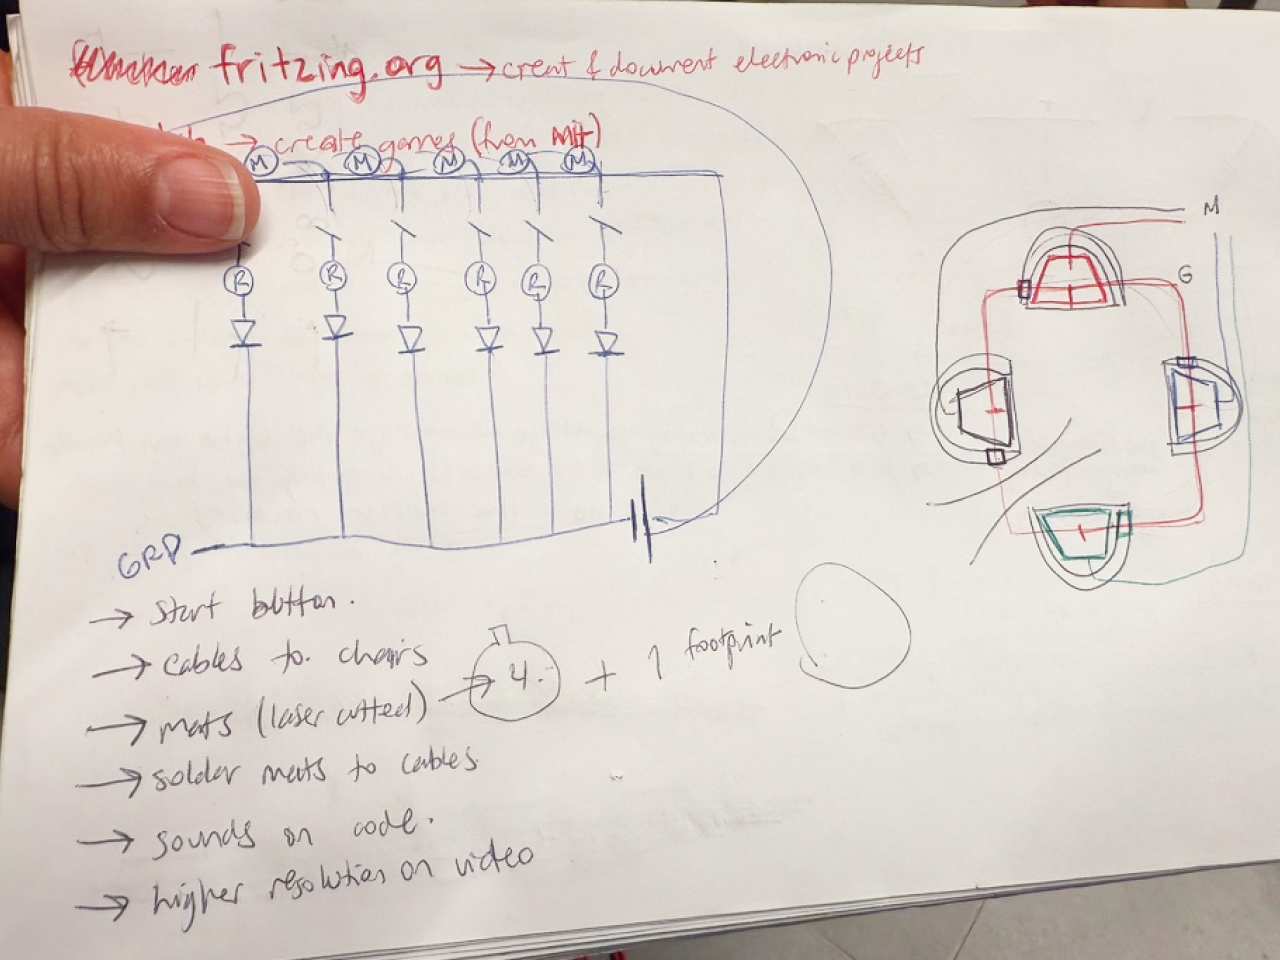 fritzing.org → creat & document electronic projects
→ create games (from MIT)
M M M M M
R R R R R R
GRD
→ start button.
→ cables to chairs
→ mats (laser cutted) → 4. + 1 footprint
→ solder mats to cables
→ sounds on code.
→ higher resolution on video
M
G